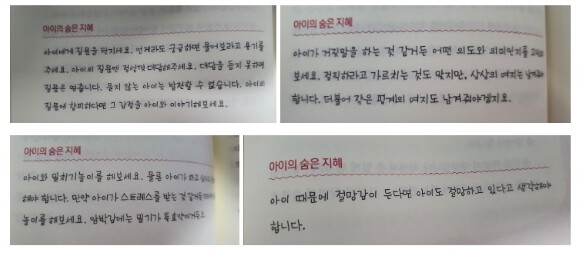 아이의 숨은 지혜
아이에게 질문을 던지세요. 언제라도 궁금하면 물어보라고 용기를
주세요. 아이의 질문엔 정성껏 대답해주세요. 대답을 듣지 못하면
질문은 멈춥니다. 묻지 않는 아이는 발전할 수 없습니다. 아이의
질문에 창피하다면 그 감정을 아이와 이야기해보세요.
아이의 숨은 지혜
아이가 거짓말을 하는 것 같거든 어떤 의도와 의미인지를
보세요. 정직하라고 가르치는 것도 맞지만, 상상의 여지는 남겨줘야
합니다. 더불어 작은 핑계의 여지도 남겨줘야겠지요.
아이의 숨은 지혜
아이와 밀치기놀이를 해보세요. 물론 아이가 하고
해야 합니다. 만약 아이가 스트레스를 받는 것 같거든
놀이를 해보세요. 압박감에는 밀기가 특효약이거든요
아이의 숨은 지혜
아이 때문에 절망감이 든다면 아이도 절망하고 있다고 생각해야
합니다.